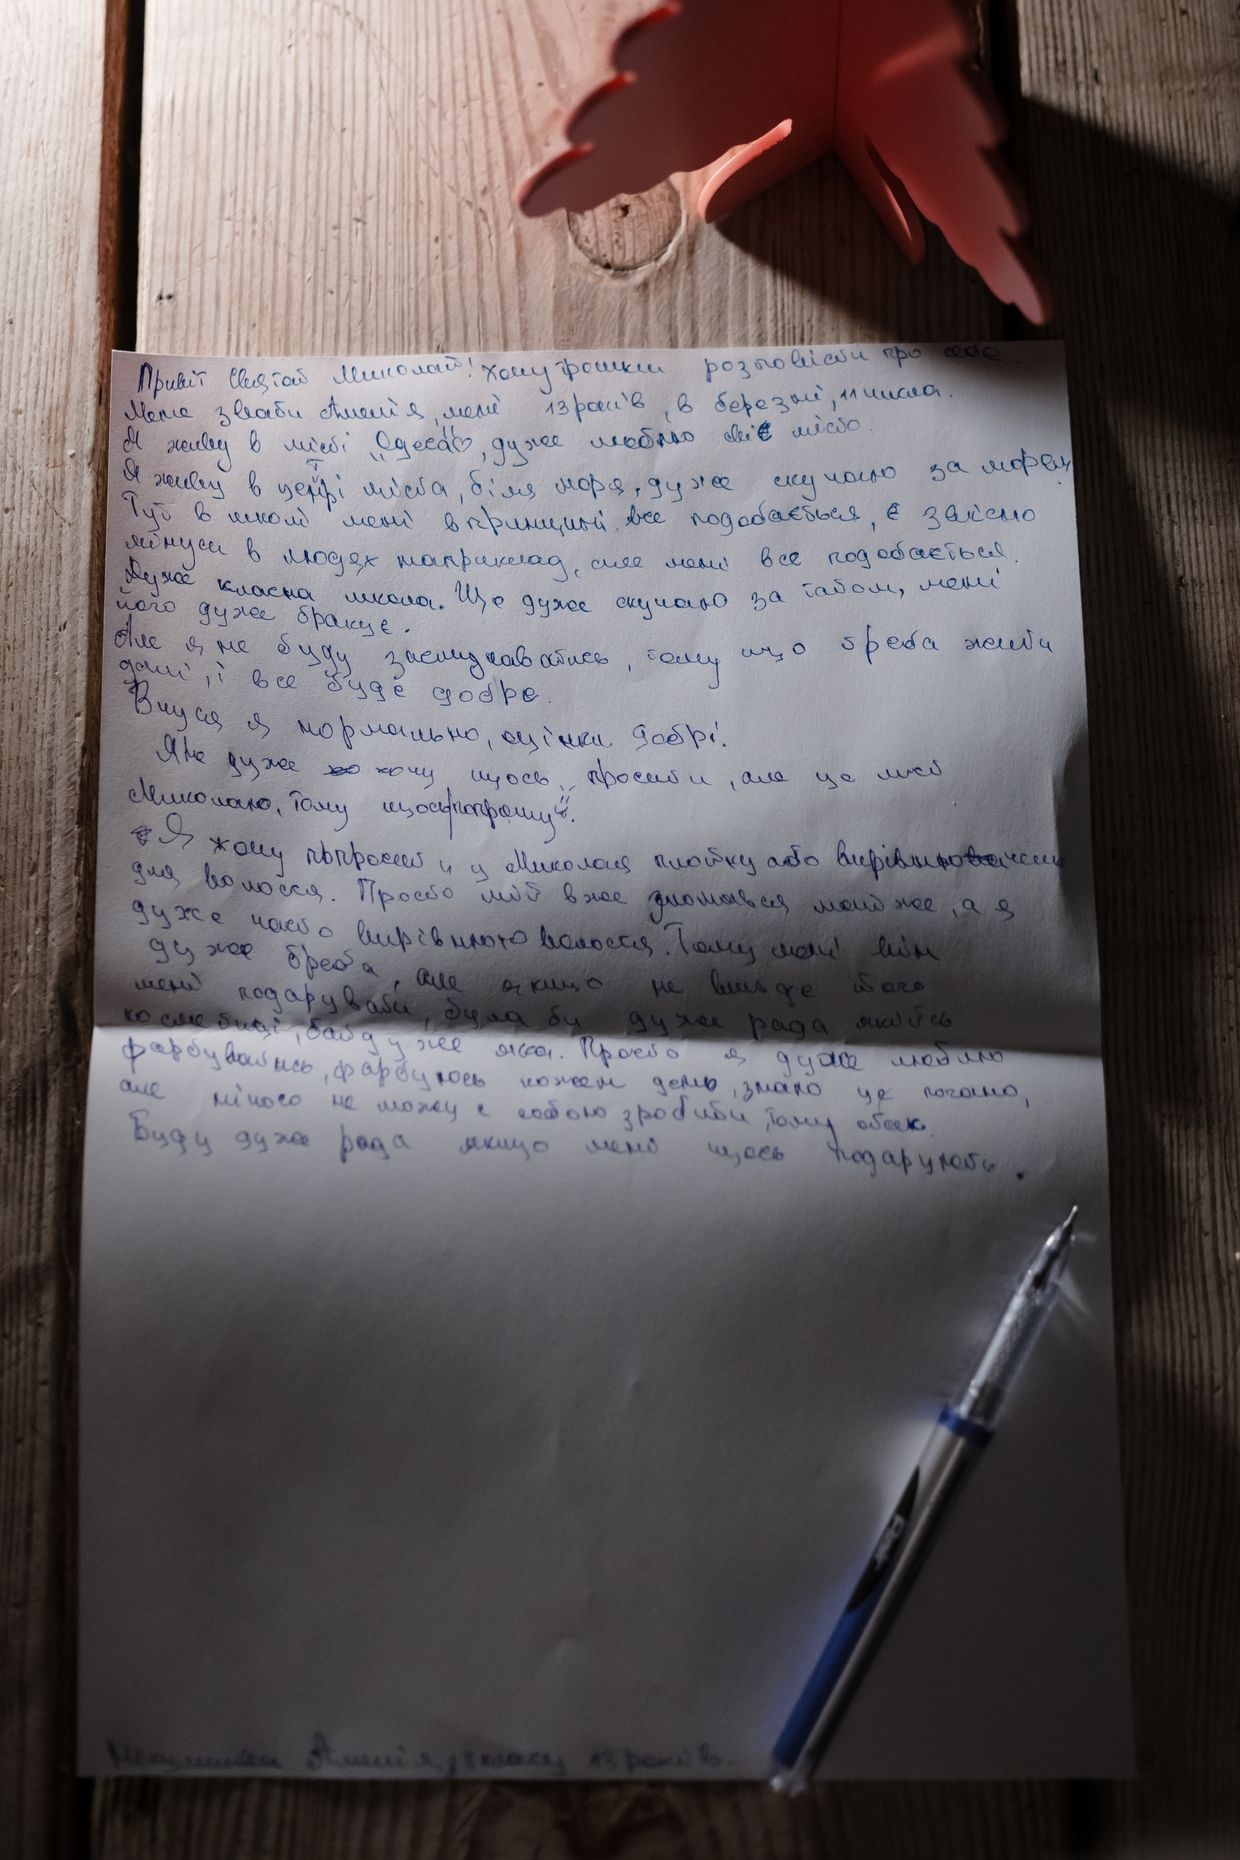 Привіт Святой Миколай! Хочу трошки розповісти про себе.
Мене звати Амелія, мені 13 років, в березні, 11 числа.
Я живу в місті "Одеса"♡, дуже люблю своє місто.
Я живу в центрі міста, біля моря, дуже скучаю за морем
Тут в школі мені впринципі все подобається, є звісно
мінуси в людях наприклад, але мені все подобається.
Дуже класна школа. Ще дуже скучаю за татом, мені
його дуже бракує.
Але я не буду засмучаватись, тому що треба жити
далі, і все буде добре.
Вчуся я нормально, оцінки добрі.
Я не дуже хочу щось "просити, але це лист
Миколаю, тому щось попрошу".
Я хочу попросити у Миколая плойку або вирівнювачем
для волосся. Просто мій вже зломався майже, а я
дуже часто вирівнюю волосся. Тому мені він
дуже треба, але якщо не вийде його
мені подарувати, була би дуже рада якийсь
косметиці, байдуже яка. Просто я дуже люблю
фарбуватись, фарбуюсь кожен день, знаю це погано,
але нічого не можу с собою зробити, тому обак.
Буду дуже рада якщо мені щось подарують.
Амелія, 8 класу 13 років.